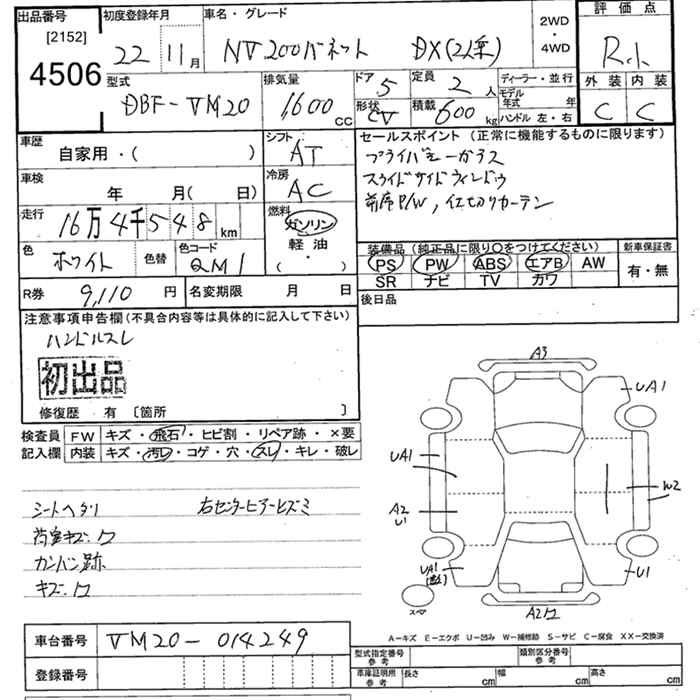 出品番号
[2152]
4506
初度登録年月
22年 11月
車名・グレード
NV200バネット DX(2人乗)
2WD
・
4WD
評価点
R小
外装 内装
C C
型式
DBF-VM20
排気量
1,600 CC
ドア 5
形状 CV
定員 2人
積載 600 kg
ディーラー・並行
モデル年式 年
ハンドル 左・右
車歴
自家用・( )
シフト
AT
車検
年 月( 日)
冷房
AC
走行
16万4千548km
燃料
ガソリン
軽油
( ・ )
色
ホワイト
色替
色コード
QM1
R券 9,110円
名変期限 月 日
セールスポイント(正常に機能するものに限ります)
プライバシーガラス
スライドサイドウィンドウ
前席P/W,仕切りカーテン
装備品(純正品に限り○をつけてください)
PS PW ABS エアB AW
SR ナビ TV カワ
新車保証書
有・無
後日品
注意事項申告欄(不具合内容等は具体的に記入して下さい)
ハンドルスレ
初出品
修復歴 有 〔箇所 〕
検査員記入欄
FW キズ・飛石・ヒビ割・リペア跡・×要
内装 キズ・汚レ・コゲ・穴・スレ・キレ・破レ
シートヘタリ 右センターピラーヒズミ
荷室キズ、ワ
カンバン跡
キズ、ワ
A3
UA1
UA1
A2
U1
W2
UA1
U1
スペア
A2ワ
A-キズ E-エクボ U-凹み W-補修跡 S-サビ C-腐食 XX-交換済
車台番号 VM20-014249
登録番号
型式指定番号 参考
類別区分番号 参考
車庫証明用 参考
長さ cm
幅 cm
高さ cm